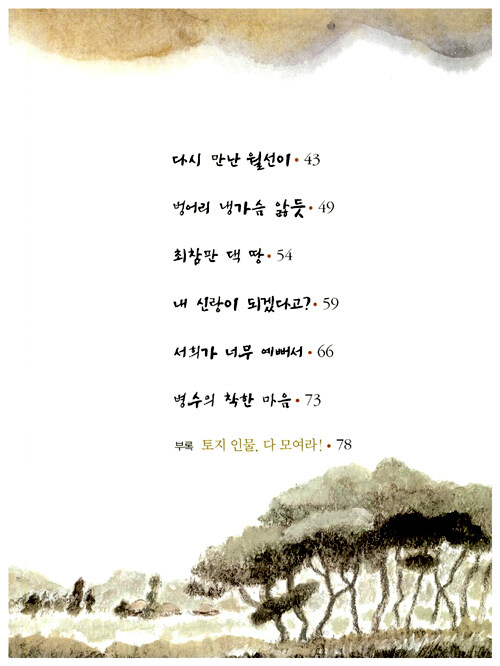 다시 만난 월선이 • 43
벙어리 냉가슴 앓듯 • 49
최참판 댁 땅 • 54
내 신랑이 되겠다고? • 59
서희가 너무 예뻐서 • 66
병수의 착한 마음 • 73
부록 토지 인물, 다 모여라! • 78